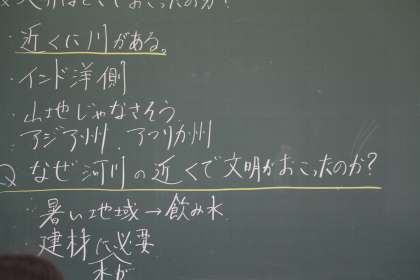 文明はどこでおこったのか?
・近くに川がある。
・インド洋側
・山地じゃなさそう
・アジア州、アフリカ州
Q なぜ河川の近くで文明がおこったのか?
・暑い地域→飲み水
・建材に必要
木が